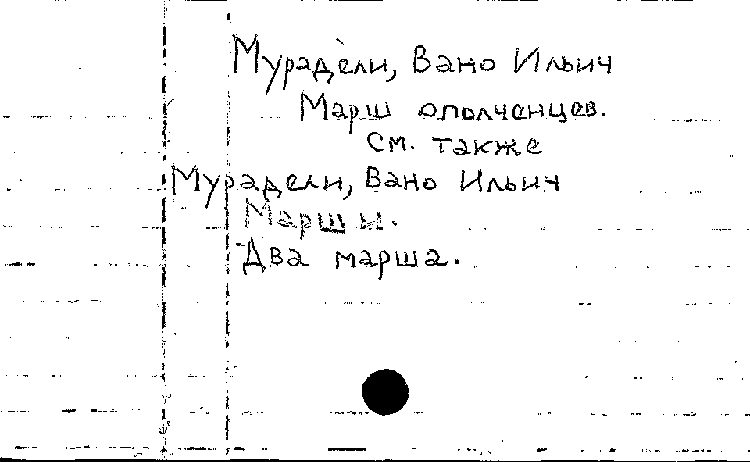 Мурадели, Вано Ильич
Марш ополченцев.
см. также
Мурадели, Вано Ильич
Марши.
Два марша.